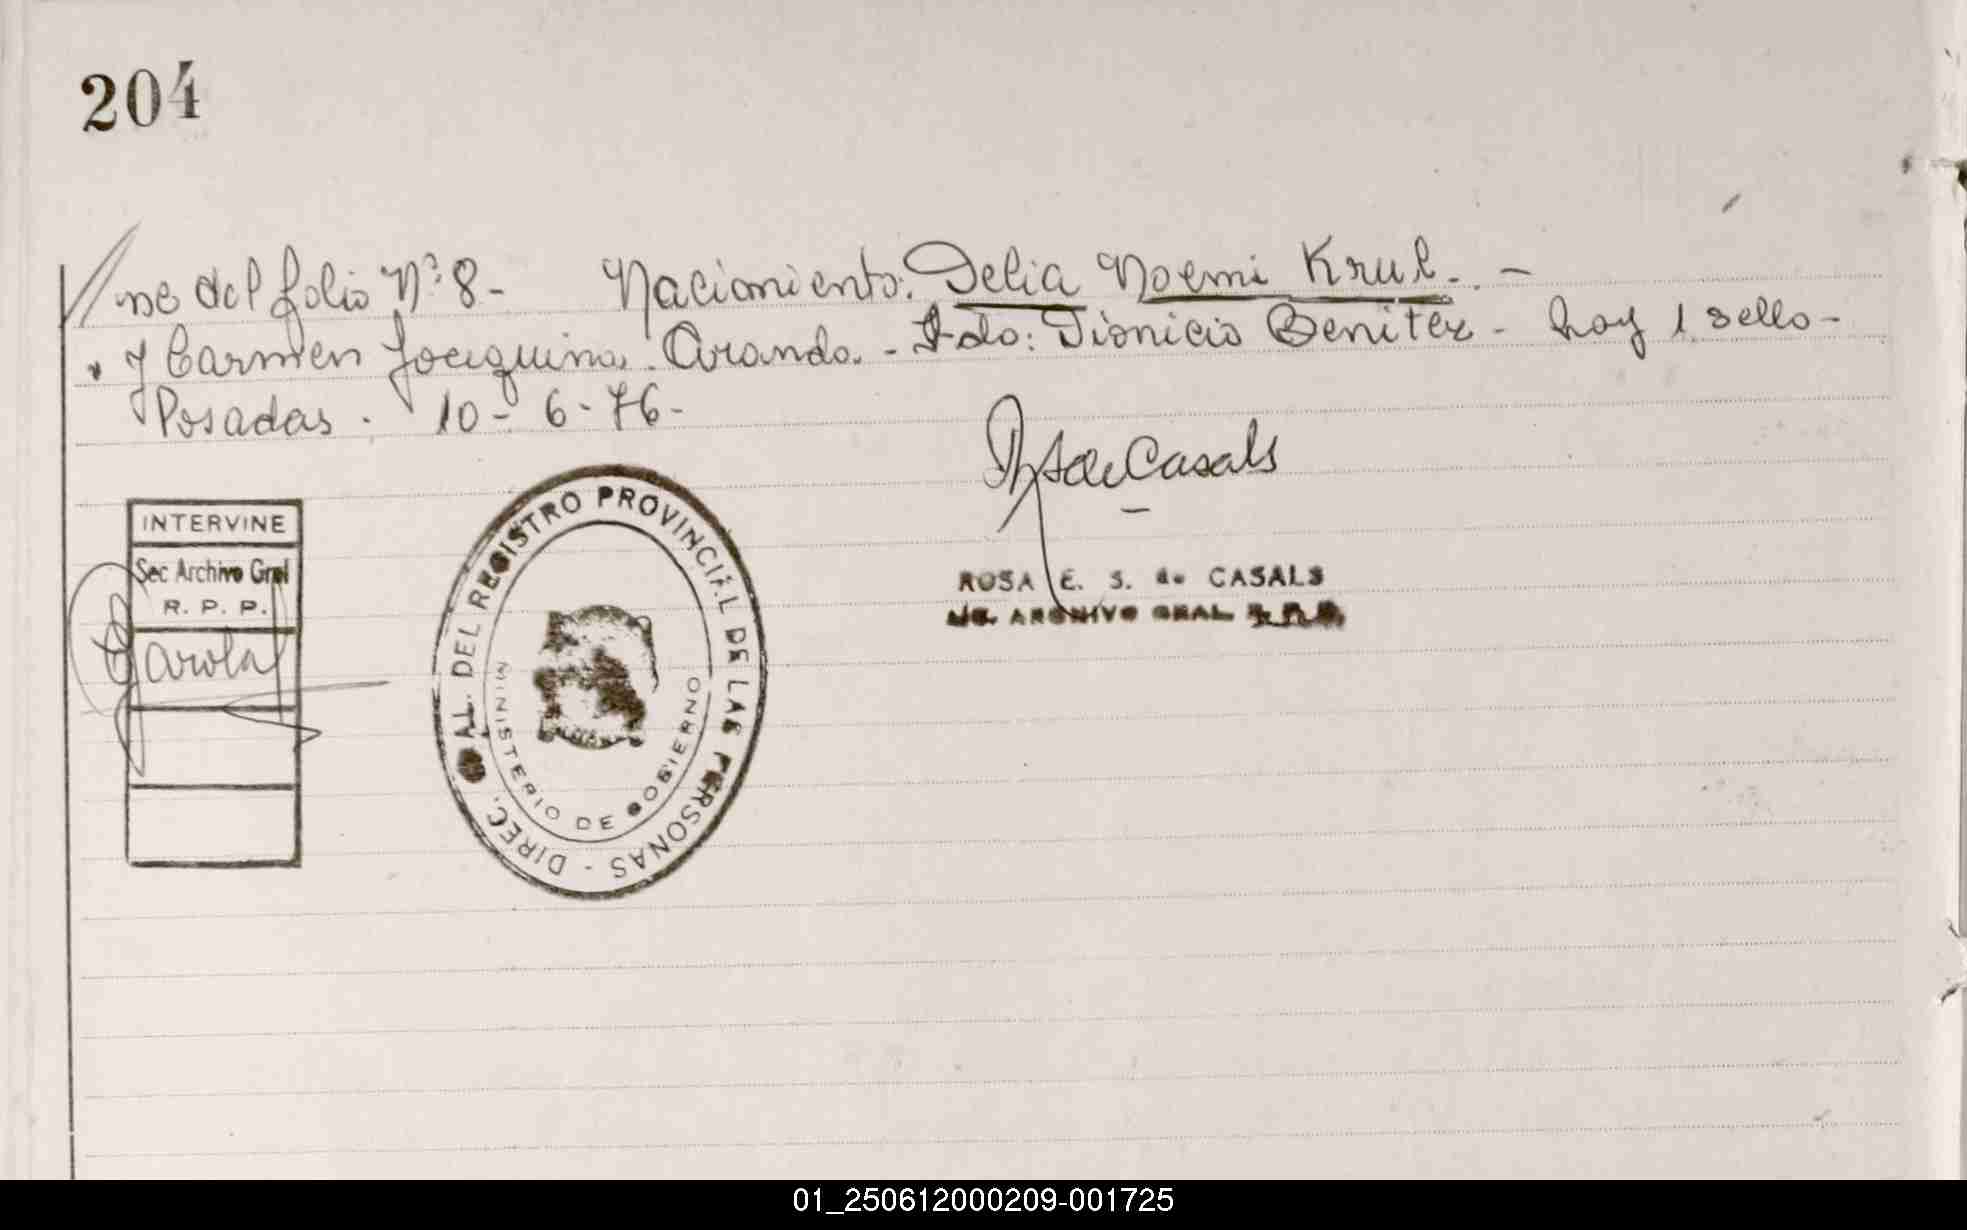 204
Viene del folio Nº 8- Nacimiento: Delia Noemi Krul. -
y Carmen Joaquina Aranda. - Fdo: Dionicio Benitez - hay 1 sello -
Posadas. 10- 6- 76-
de Casals
INTERVINE
Sec Archivo Gral
R. P. P.
DIREC. GRAL. DEL REGISTRO PROVINCIAL DE LAS PERSONAS -
MINISTERIO DE GOBIERNO
ROSA E. S. de CASALS
ARCHIVO GRAL
01_250612000209-001725